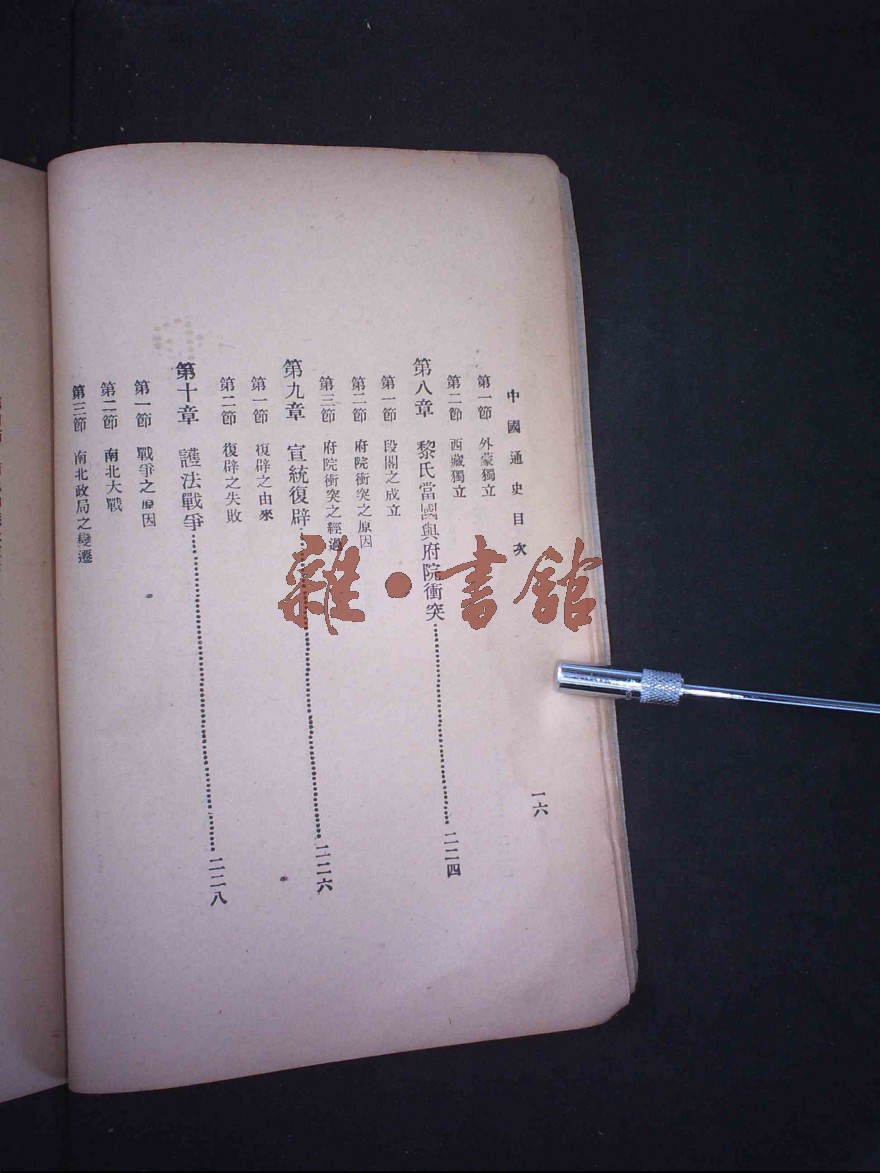 中國通史目次
一六
第一節 外蒙獨立
第二節 西藏獨立
第八章 黎氏當國與府院衝突……二二四
第一節 段閣之成立
第二節 府院衝突之原因
第三節 府院衝突之經過
第九章 宣統復辟……二二六
第一節 復辟之由來
第二節 復辟之失敗
第十章 護法戰爭……二二八
第一節 戰爭之原因
第二節 南北大戰
第三節 南北政局之變遷
雜·書館